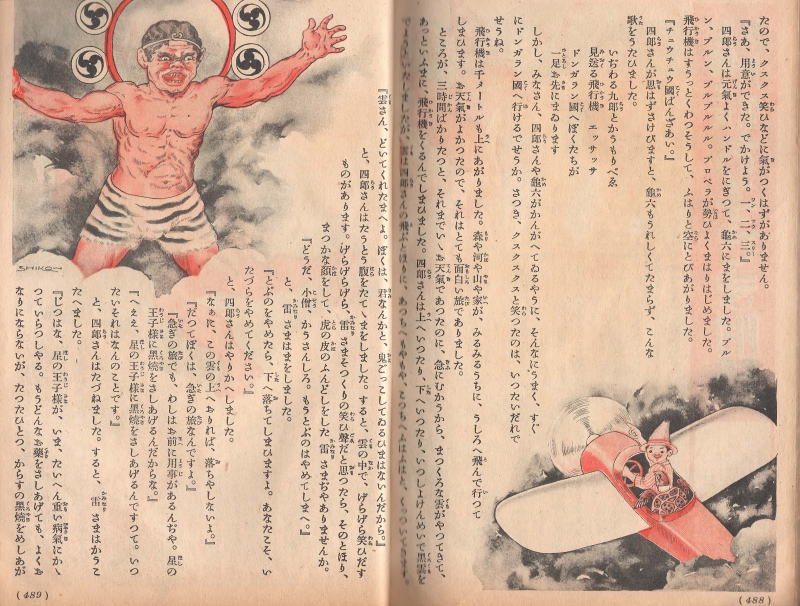 たので、クスクス笑ひなどに氣がつくはずがありません。
『さあ、用意ができた。でかけよう。一、二、三。』
四郎さんは元氣よくハンドルをにぎつて、龜六にまをしました。ブル
ン、ブルン、ブルブルルル。プロペラが勢ひよくまはりはじめました。
飛行機はすうつとくわつそうして、ふはりと空にとびあがりました。
『チュウチュウ國ばんざあい。』
四郎さんが思はずさけびますと、龜六もうれしくてたまらず、こんな
歌をうたひました。
いぢわる九郎とかうもりべゑ
見送る飛行機 エッサッサ
ドンガラン國へぼくたちが
一足お先にまゐります
しかし、みなさん、四郎さんや龜六がかんがへてゐるやうに、そんなにうまく、すぐ
にドンガラン國へ行けるでせうか。さつき、クスクスクスと笑つたのは、いつたいだれで
せうね。
飛行機は千メートルも上にあがりました。森や河や山や家が、みるみるうちに、うしろへ飛んで行つて
しまひます。お天氣がよかつたので、それはとても面白い旅でありました。
ところが、三時間ばかりたつと、それまでいゝお天氣であつたのに、急にむかうから、まつくろな雲がやつてきて、
あつといふまに、飛行機をくるんでしまひました。四郎さんは上へいつたり、下へいつたり、いつしよけんめいで黑雲を
でようといたしましたが、雲は四郎さんの飛ぶとほりに、あつちへもやもや、こつちへふはふはと、くつついてきます。
『雲さん、どいてくれたまへよ。ぼくは、君なんかと、鬼ごつこしてゐるひまはないんだから。』
と、四郎さんはたうとう腹をたてゝまをしました。すると、雲の中で、げらげら笑ひだす
ものがあります。げらげらげら、雷さまそつくりの笑ひ聲だと思つたら、そのとほり、
まつかな顏をして、虎の皮のふんどしをした雷さまぢやありませんか。
『どうだ、小僧、かうさんしろ。もうとぶのはやめてしまへ。』
と、雷さまはまをしました。
『とぶのをやめたら、下へ落ちてしまひますよ。あなたこそ、い
たづらをやめてください。』
と、四郎さんはやりかへしました。
『なぁに、この雲の上へおりれば、落ちやしないよ。』
『だつてぼくは、急ぎの旅なんですよ。』
『急ぎの旅でも、わしはお前に用事があるんぢや。星の
王子樣に黑燒をさしあげるんだからな。』
『へええ、星の王子樣に黑燒をさしあげるんですつて。いつ
たいそれはなんのことです。』
と、四郎さんはたづねました。すると、雷さまはかうこ
たへました。
『じつはな、星の王子樣が、いま、たいへん重い病氣にかゝ
つていらつしやる。もうどんなお藥をさしあげても、よくお
なりにならないが、たつたひとつ、からすの黑燒をめしあが
SHIKOW
(489)
(488)